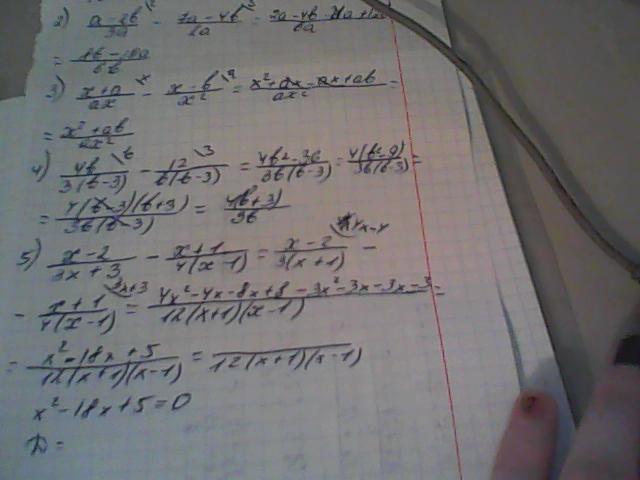 2) (a-2b)/3a \2 - (7a-4b)/2a = (2a-4b-21a+12b)/6a
= (8b-19a)/6b
3) (x+a)/ax \x - (x-b)/x² \a = (x²+ax-ax+ab)/ax² =
= (x²+ab)/ax²
4) 4b/3(b-3) \b - 12/b(b-3) \3 = (4b²-36)/3b(b-3) = 4(b²-9)/3b(b-3) =
= 4(b-3)(b+3)/3b(b-3) = 4(b+3)/3b
5) (x-2)/(3x+3) - (x+1)/4(x-1) = (x-2)/3(x+1) \4x-4 -
- (x+1)/4(x-1) \3x+3 = (4x²-4x-8x+8-3x²-3x-3x-3)/12(x+1)(x-1) =
= (x²-18x+5)/12(x+1)(x-1) = /12(x+1)(x-1)
x²-18x+5=0
D=